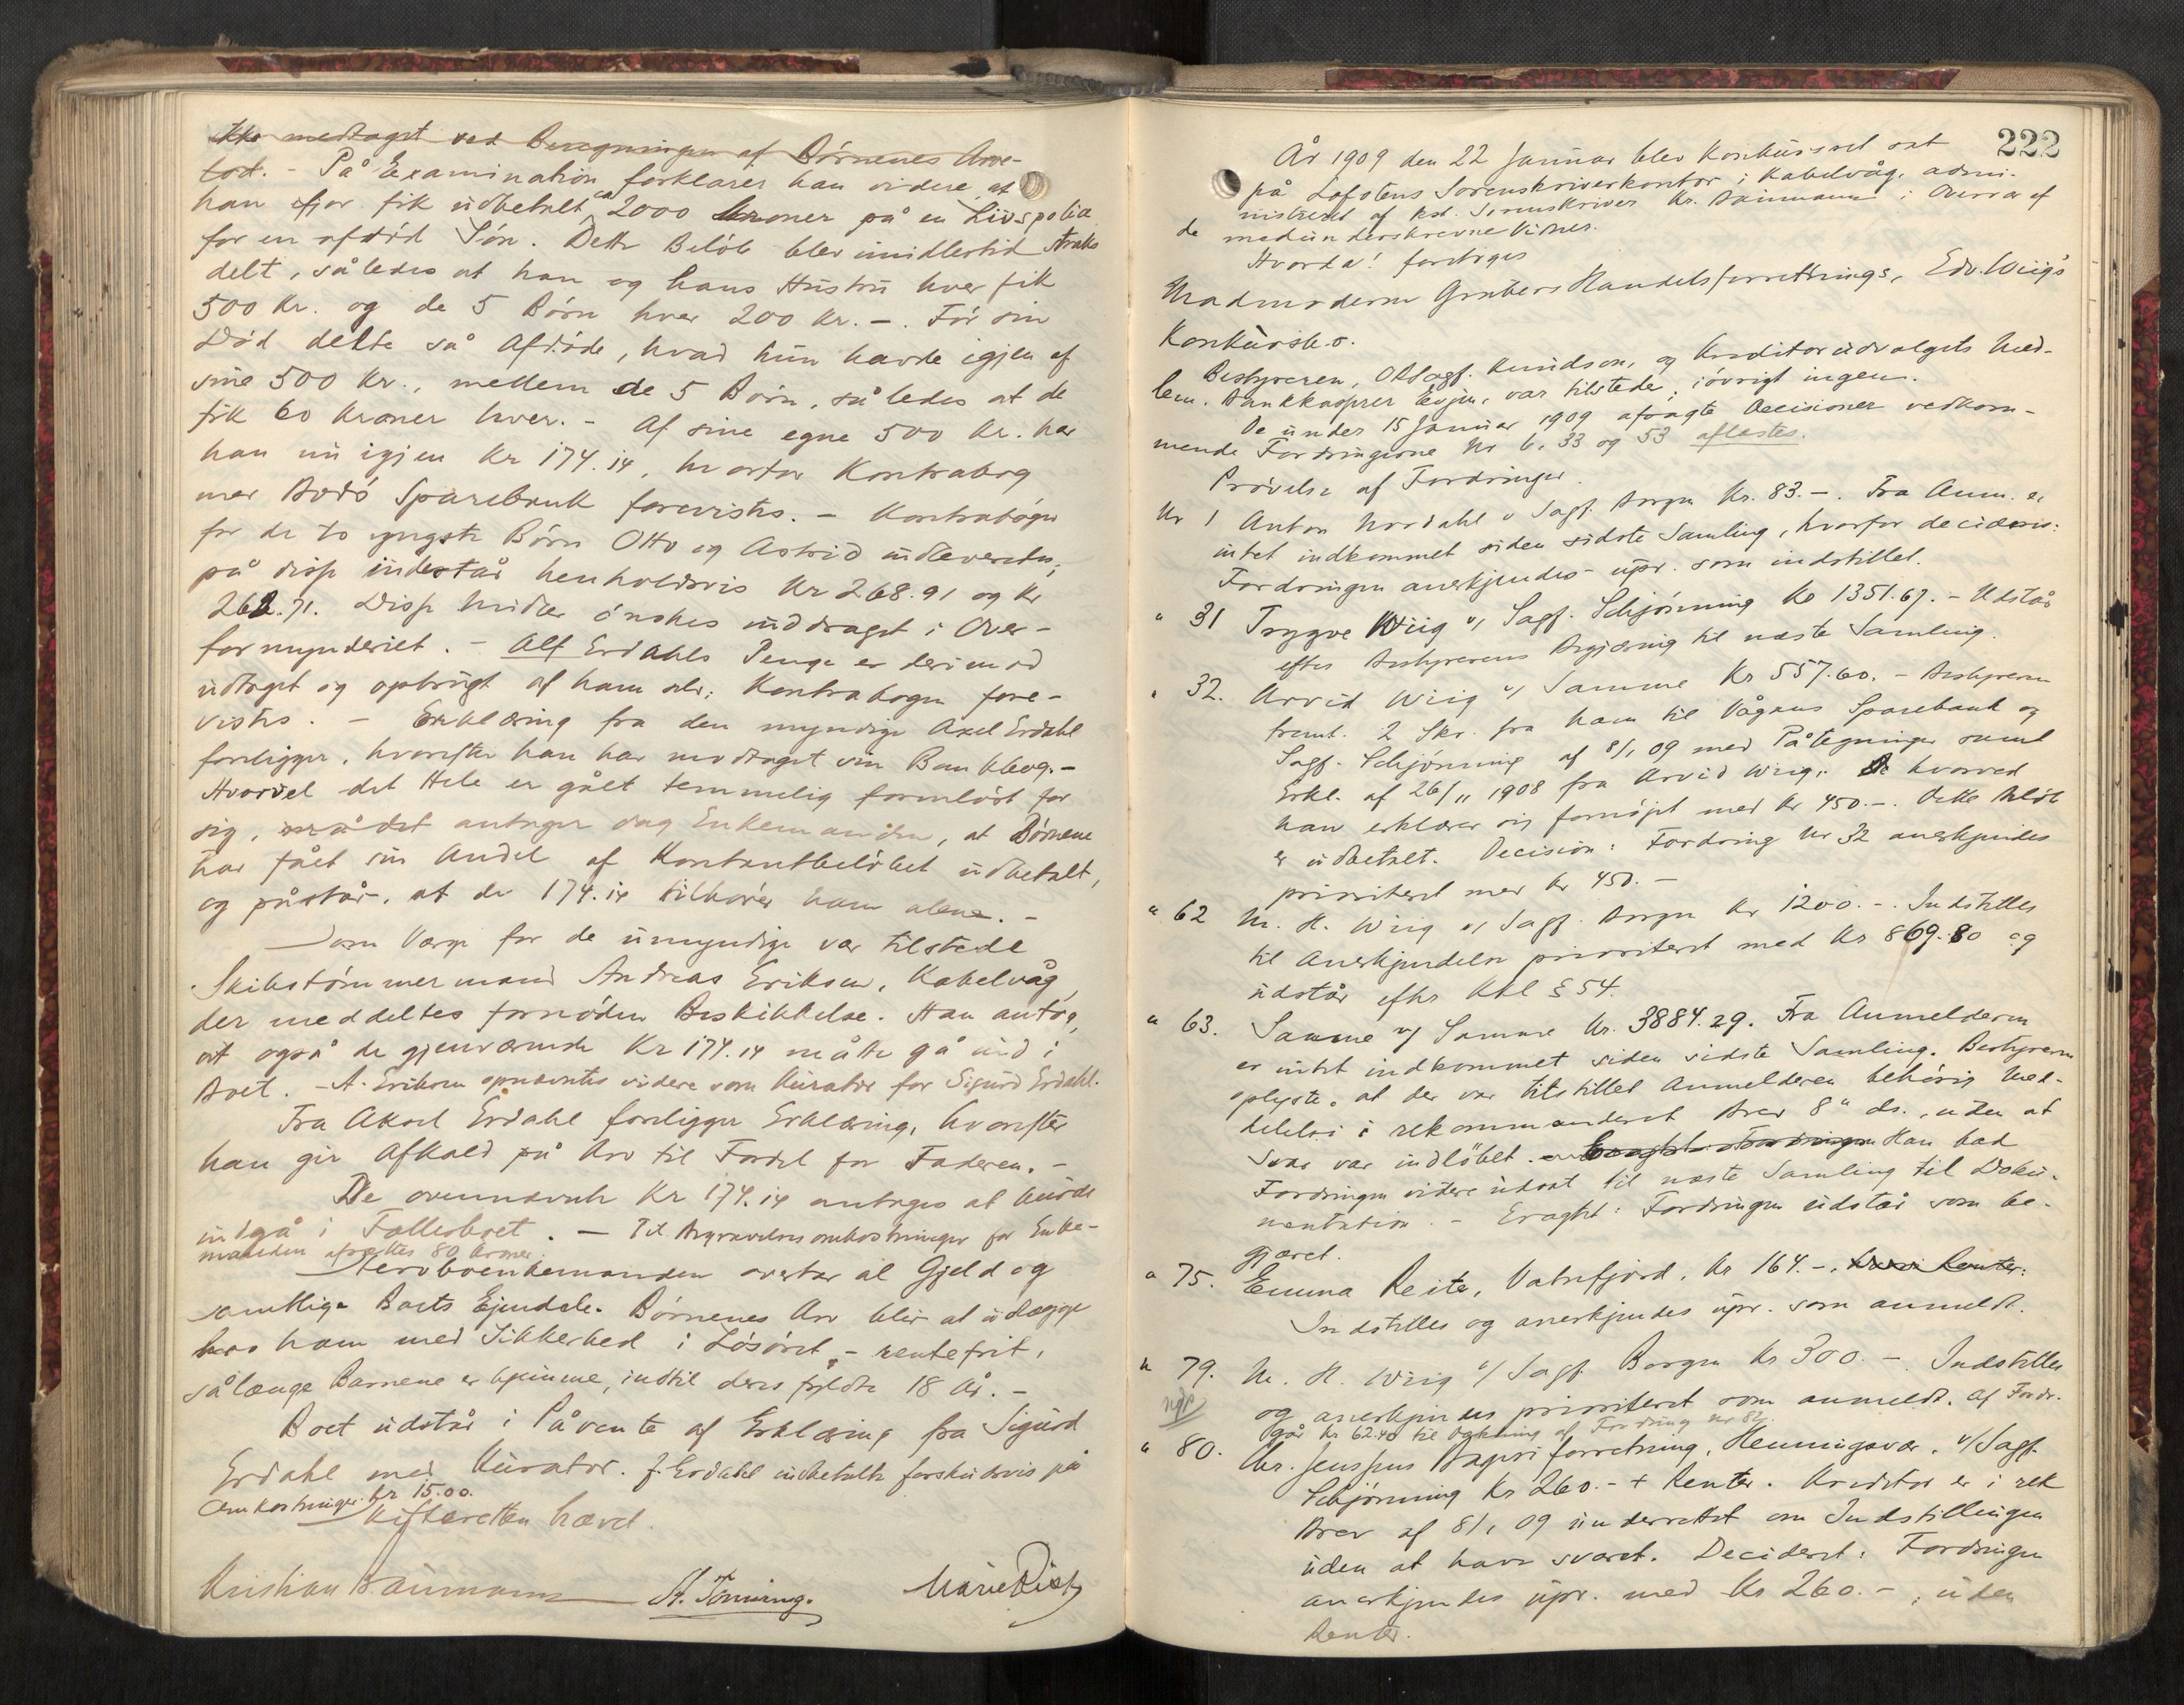 ikke medtaget ved Beregningen af Börnenes Arve-
lod. - På Examination forklarer han videre, at
han ifjor fik udbetalt ca 2000 Kroner på en Livspolice
for en afdöd Sön. Dette Belöb blev imidlertid straks
delt, således at han og hans Hustru hver fik
500 Kr. og de 5 Börn hver 200 Kr. -. För sin
Död delte så Afdöde, hvad hun havde igjen af
sine 500 Kr., mellem de 5 Börn, således at de
fik 60 Kroner hver. - Af sine egne 500 Kr. har
han nu igjen Kr 174.14, hvorfor Kontrabog
med Bodö Sparebank forevistes. - Kontraböger
for de to yngste Börn Otto og Astrid indleveredes;
på disse indestår henholdsvis Kr 268.91 og Kr
262.71. Disse Midler önskes inddraget i Over-
formynderiet. - Alf Erdahls Penge er derimod
udtaget og opbrugt af ham selv; Kontrabogen fore-
vistes. - Erklæring fra den myndige Axel Erdahl
foreligger, hvorefter han har modtaget sin Bankbog. -
Hvorvel det Hele er gået temmelig formlöst for
sig, antager dog Enkemanden, at Börnene
har fået sin Andel af Kontantbelöbet udbetalt,
og påstår, at de 174.14 tilhörer ham alene. -
Som Værge for de umyndige var tilstede
Skibstömmermand Andreas Eriksen, Kabelvåg,
der meddeltes fornöden Beskikkelse. Han antog,
at også de gjenværende Kr 174.14 måtte gå ind i
Boet. - A. Eriksen opnævntes videre som Kurator for Sigurd Erdahl.
Fra Aksel Erdahl foreligger Erklæring, hvorefter
han gir Afkald på Arv til Fordel for Faderen. -
De ovennævnte Kr 174.14 antages at burde
indgå i Fællesboet. - Til Begravelsesomkostninger for Enke-
manden afsættes 80 Kroner.
Stervboenkemanden overtar al Gjeld og
samtlige Boets Ejendele. Börnenes Arv blir at udlægge
hos ham med Sikkerhed i Lösöret, - rentefrit,
sålænge Barnene er hjemme, indtil deres fyldte 18 År. -
Boet udstår i Påvente af Erklæring fra Sigurd
Erdahl med Kurator. J. Erdahl indbetalte forskudsvis på
Omkostninger Kr 15.00.
Skifteretten hævet.
Kristian Baumann A. Tönning. Marie Rist
222
År 1909 den 22 Januar blev Konkursret sat
på Lofotens Sorenskriverkontor i Kabelvåg, admi-
nistreret af kst. Sorenskriver Kr. Baumann i Overvær af
de medunderskrevne Vidner.
Hvorda! foretoges
Madmoderen Grubers Handelsforretnings, Edv. Wiig's
Konkursbo.
Bestyreren, ORSagf. Knudson, og Kreditorudvalgets Med-
lem, Bankkasserer Evjen, var tilstede; iövrigt ingen.
De under 15 Januar 1909 afsagte Decisioner vedkom-
mende Fordringerne No 6, 33 og 53 aflæstes.
Prövelse af Fordringer.
Nr 1 Anton Nordahl v Sagf. Borgen Kr. 83. -. Fra Anm. er
intet indkommet siden sidste Samling, hvorfor decideres:
Fordringen anerkjendes upr. som indstillet.
" 31 Trygve Wiig v/ Sagf. Schjönning Kr 1351.67. - Udstår
efter Bestyrerens Begjæring til næste Samling.
" 32. Arvid Wiig v/ Samme Kr 557.60. - Bestyreren
fremt. 2 Skr. fra ham til Vågans Sparebank og
Sagf. Schjönning af 8/1 09 med Påtegninger samt
Erkl. af 26/11 1908 fra Arvid Wiig, hvorved
han erklærer sig fornöjet med Kr 450. -. Dette Belöb
er udbetalt. Decision: Fordring Nr 32 anerkjendes
prioriteret med Kr 450. -
" 62 M. H. Wiig v/ Sagf. Borgen Kr 1200. -. Indstilles
til Anerkjendelse prioriteret med Kr 869.80 og
udstår efter Kkl § 54.
" 63. Samme v/ Samme Kr. 3884.29. Fra Anmelderen
er intet indkommet siden sidste Samling. Bestyreren
oplyste, at der var tilstillet Anmelderen behörig Med-
delelse i rekommanderet Brev 8de ds., uden at
Svar var indlöbet. - Eragtet: Fordringen Han bad
Fordringen videre udsat til næste Samling til Doku-
mentation. - Eragtet: Fordringen udstår som be-
gjæret.
" 75. Emma Reite, Vatnfjord, Kr 164. -. Renter:
Indstilles og anerkjendes upr. som anmeldt.
" 79. M. H. Wiig v/ Sagf. Borgen Kr 300. -. Indstilles
og anerkjendes prioriteret som anmeldt. Af Fordr.
går Kr 62.40 til Dækning af Fordring Nr 82.
" 80. Chr. Jenssens Bageriforretning, Henningsvær, v/ Sagf.
Schjönning Kr 260. - + Renter. Kreditor er i rek
Brev af 8/1 09 underrettet om Indstillingen
uden at have svaret. Decideret: Fordringen
anerkjendes upr. med Kr 260. -, uden
Renter.